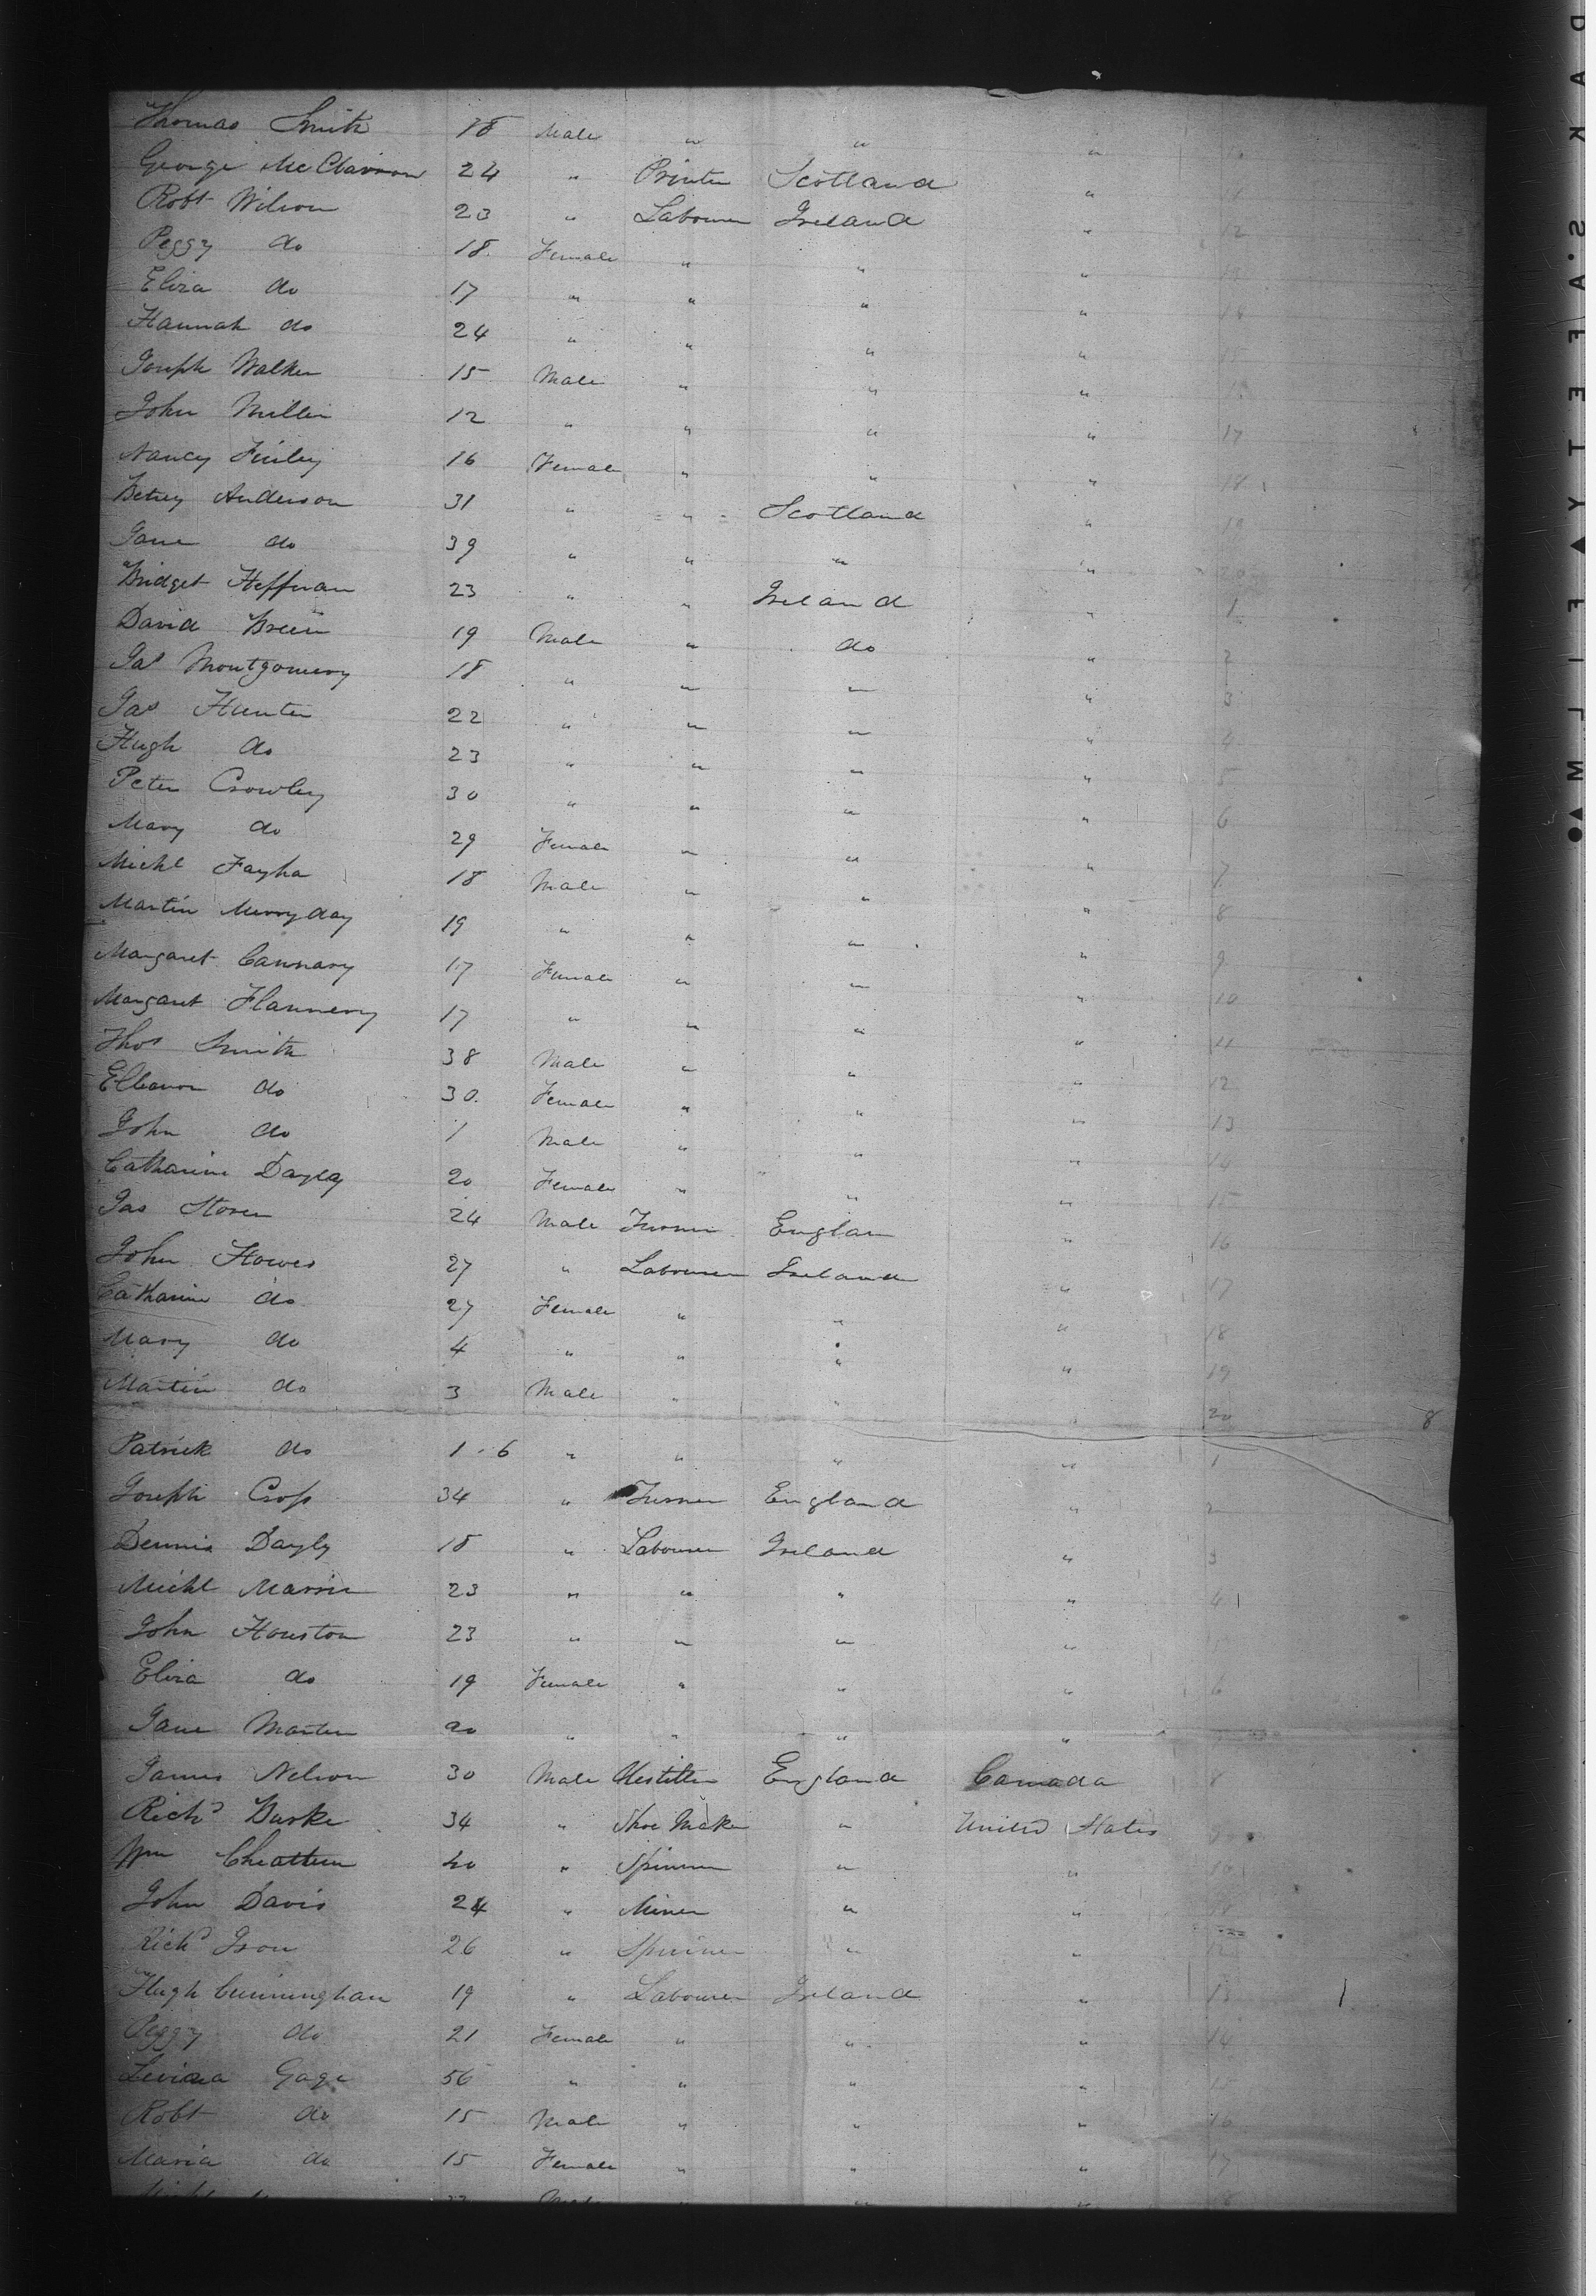 Thomas Smith 18 Male " " "
George McClavison 24 " Printer Scotland "
Robt Wilson 23 " Labourer Ireland " 12
Peggy do 18 Female " " "
Eliza do 17 " " " "
Hannah do 24 " " " "
Joseph Walker 15 Male " " "
John Miller 12 " " " " 17
Nancy Finley 16 Female " " " 18
Betsey Anderson 31 " " Scotland " 19
Jane do 39 " " " " 20
Bridget Heffman 23 " " Ireland " 1
David Breen 19 Male " do " 2
Jas Montgomery 18 " " " " 3
Jas Hunter 22 " " " " 4
Hugh do 23 " " " " 5
Peter Crowley 30 " " " " 6
Mary do 29 Female " " " 7
Michl Fayha 18 Male " " " 8
Martin Merryday 19 " " " " 9
Margaret Cannary 17 Female " " " 10
Margaret Flannery 17 " " " " 11
Thos Smith 38 Male " " " 12
Elleanor do 30 Female " " " 13
John do 1 Male " " " 14
Catharine Dayly 20 Female " " " 15
Jas Storer 24 Male Turner Englan " 16
John Howes 27 " Labourer Ireland " 17
Catharine do 27 Female " " " 18
Mary do 4 " " " " 19
Martin do 3 Male " " " 20 8
Patrick do 1.6 " " " " 1
Joseph Cross 34 " Turner England " 2
Dennis Dayly 18 " Labourer Ireland " 3
Michl 23 " " " " 4
John Houston 23 " " " "
Eliza do 19 Female " " " 6
Jane Marten 20 " " " "
James Nelson 30 Male England Canada 8
Richd Burke 34 " Shoe Maker " United States 9
Wm Cheattem 40 " Spinner " " 10
John Davis 24 " Miner " "
Richd Iron 26 " Spinner " " 12
Hugh Cunninghan 19 " Labourer Ireland " 13
Peggy do 21 Female " " " 14
Gage 56 " " " " 15
Robt do 15 Male " " " 16
Maria do 15 Female " " " 17
SAFETY FILM